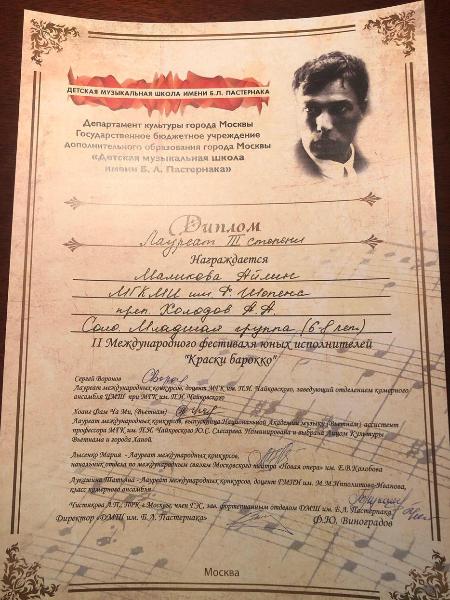 ДЕТСКАЯ МУЗЫКАЛЬНАЯ ШКОЛА ИМЕНИ Б.Л. ПАСТЕРНАКА
Департамент культуры города Москвы
Государственное бюджетное учреждение
дополнительного образования города Москвы
«Детская музыкальная школа
имени Б. Л. Пастернака»
Диплом
Лауреат III степени
Награждается
Маликова Айлин
МГКМИ им. Ф. Шопена
преп. Холодов А.А.
Соло. Младшая группа (6-8 лет.)
II Международного фестиваля юных исполнителей
"Краски барокко"
Сергей Воронов
Лауреат международных конкурсов, доцент МГК им. П.И. Чайковского, заведующий отделением камерного
ансамбля ЦМШ при МГК им. П.И. Чайковского
Хоанг Фам Ча Ми, (Вьетнам)
Лауреат международных конкурсов, выпускница Национальной Академии музыки (Вьетнам) ассистент
профессора МГК им. П.И. Чайковского Ю.С. Слесарева. Номинирована и выбрана Лицом Культуры
Вьетнама от города Ханой.
Лысенко Мария - Лауреат международных конкурсов,
начальник отдела по международным связям Московского театра «Новая опера» им. Е.В.Колобова
Лукашина Татьяна - Лауреат международных конкурсов, доцент ГМПИ им. М.М.Ипполитова-Иванова,
класс камерного ансамбля
Чистякова Л.П., ГРК г.Москвы, член ГЭС, зав. фортепианным отделом ДМШ им. Б.Л. Пастернака
Директор «ДМШ им. Б.Л. Пастернака» Ф.Ю. Виноградов
Москва